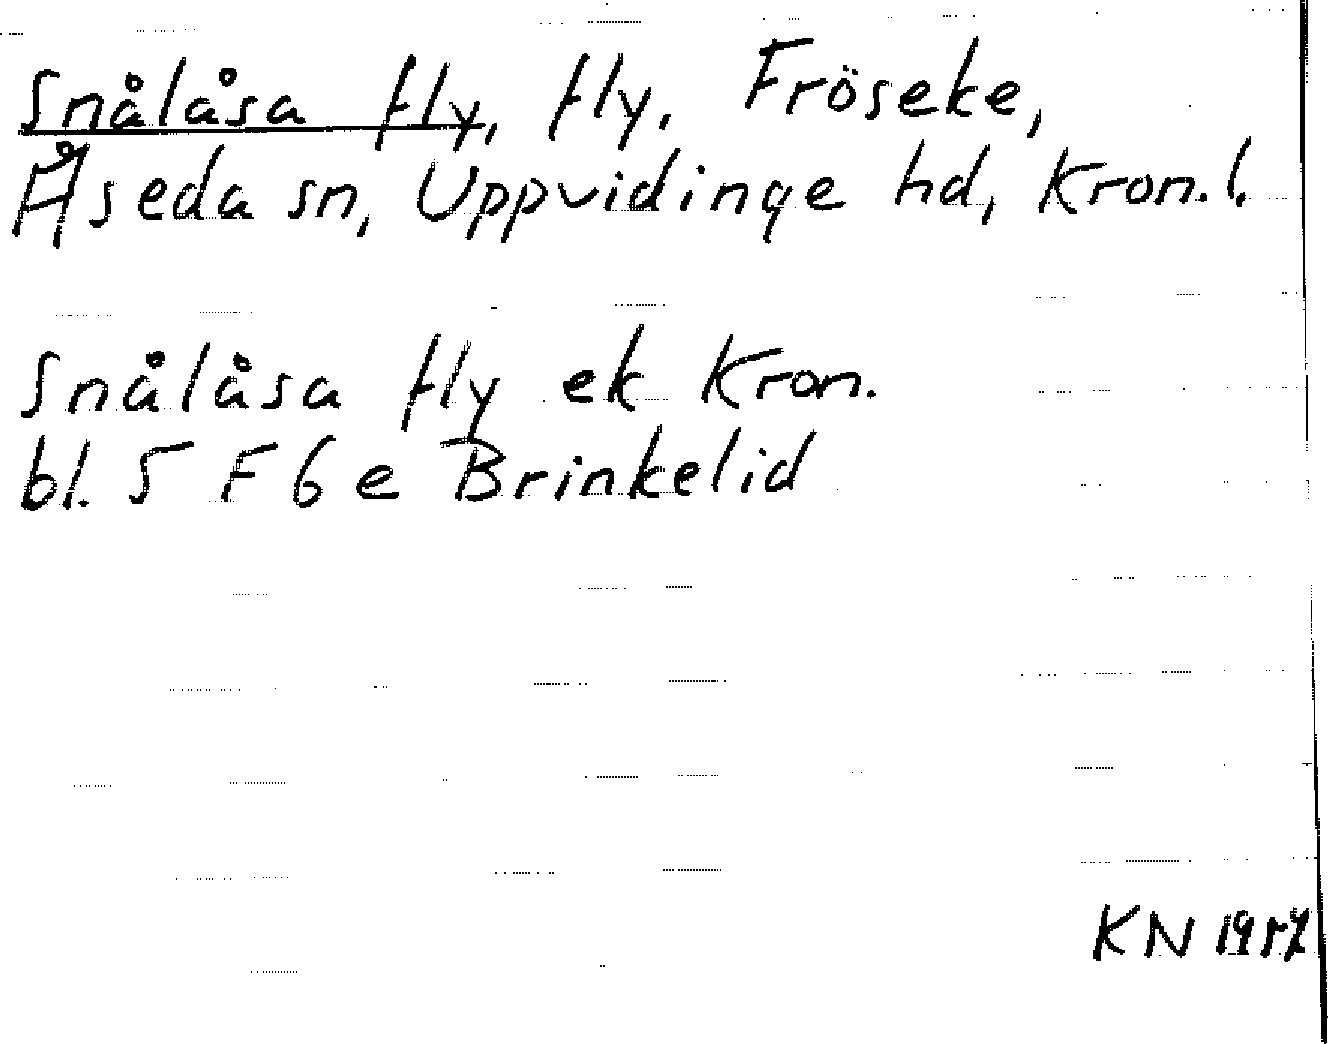 Snålåsa fly, fly, Fröseke,
Åseda sn, Uppvidinge hd, Kron.l.
Snålåsa fly ek Kron.
bl. 5 F 6 e Brinkelid
KN 1957